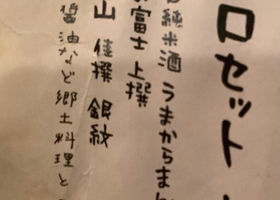 ロセット
純米酒 うまからまん
富士 上撰
山 佳撰 銀紋
醤油など郷土料理と